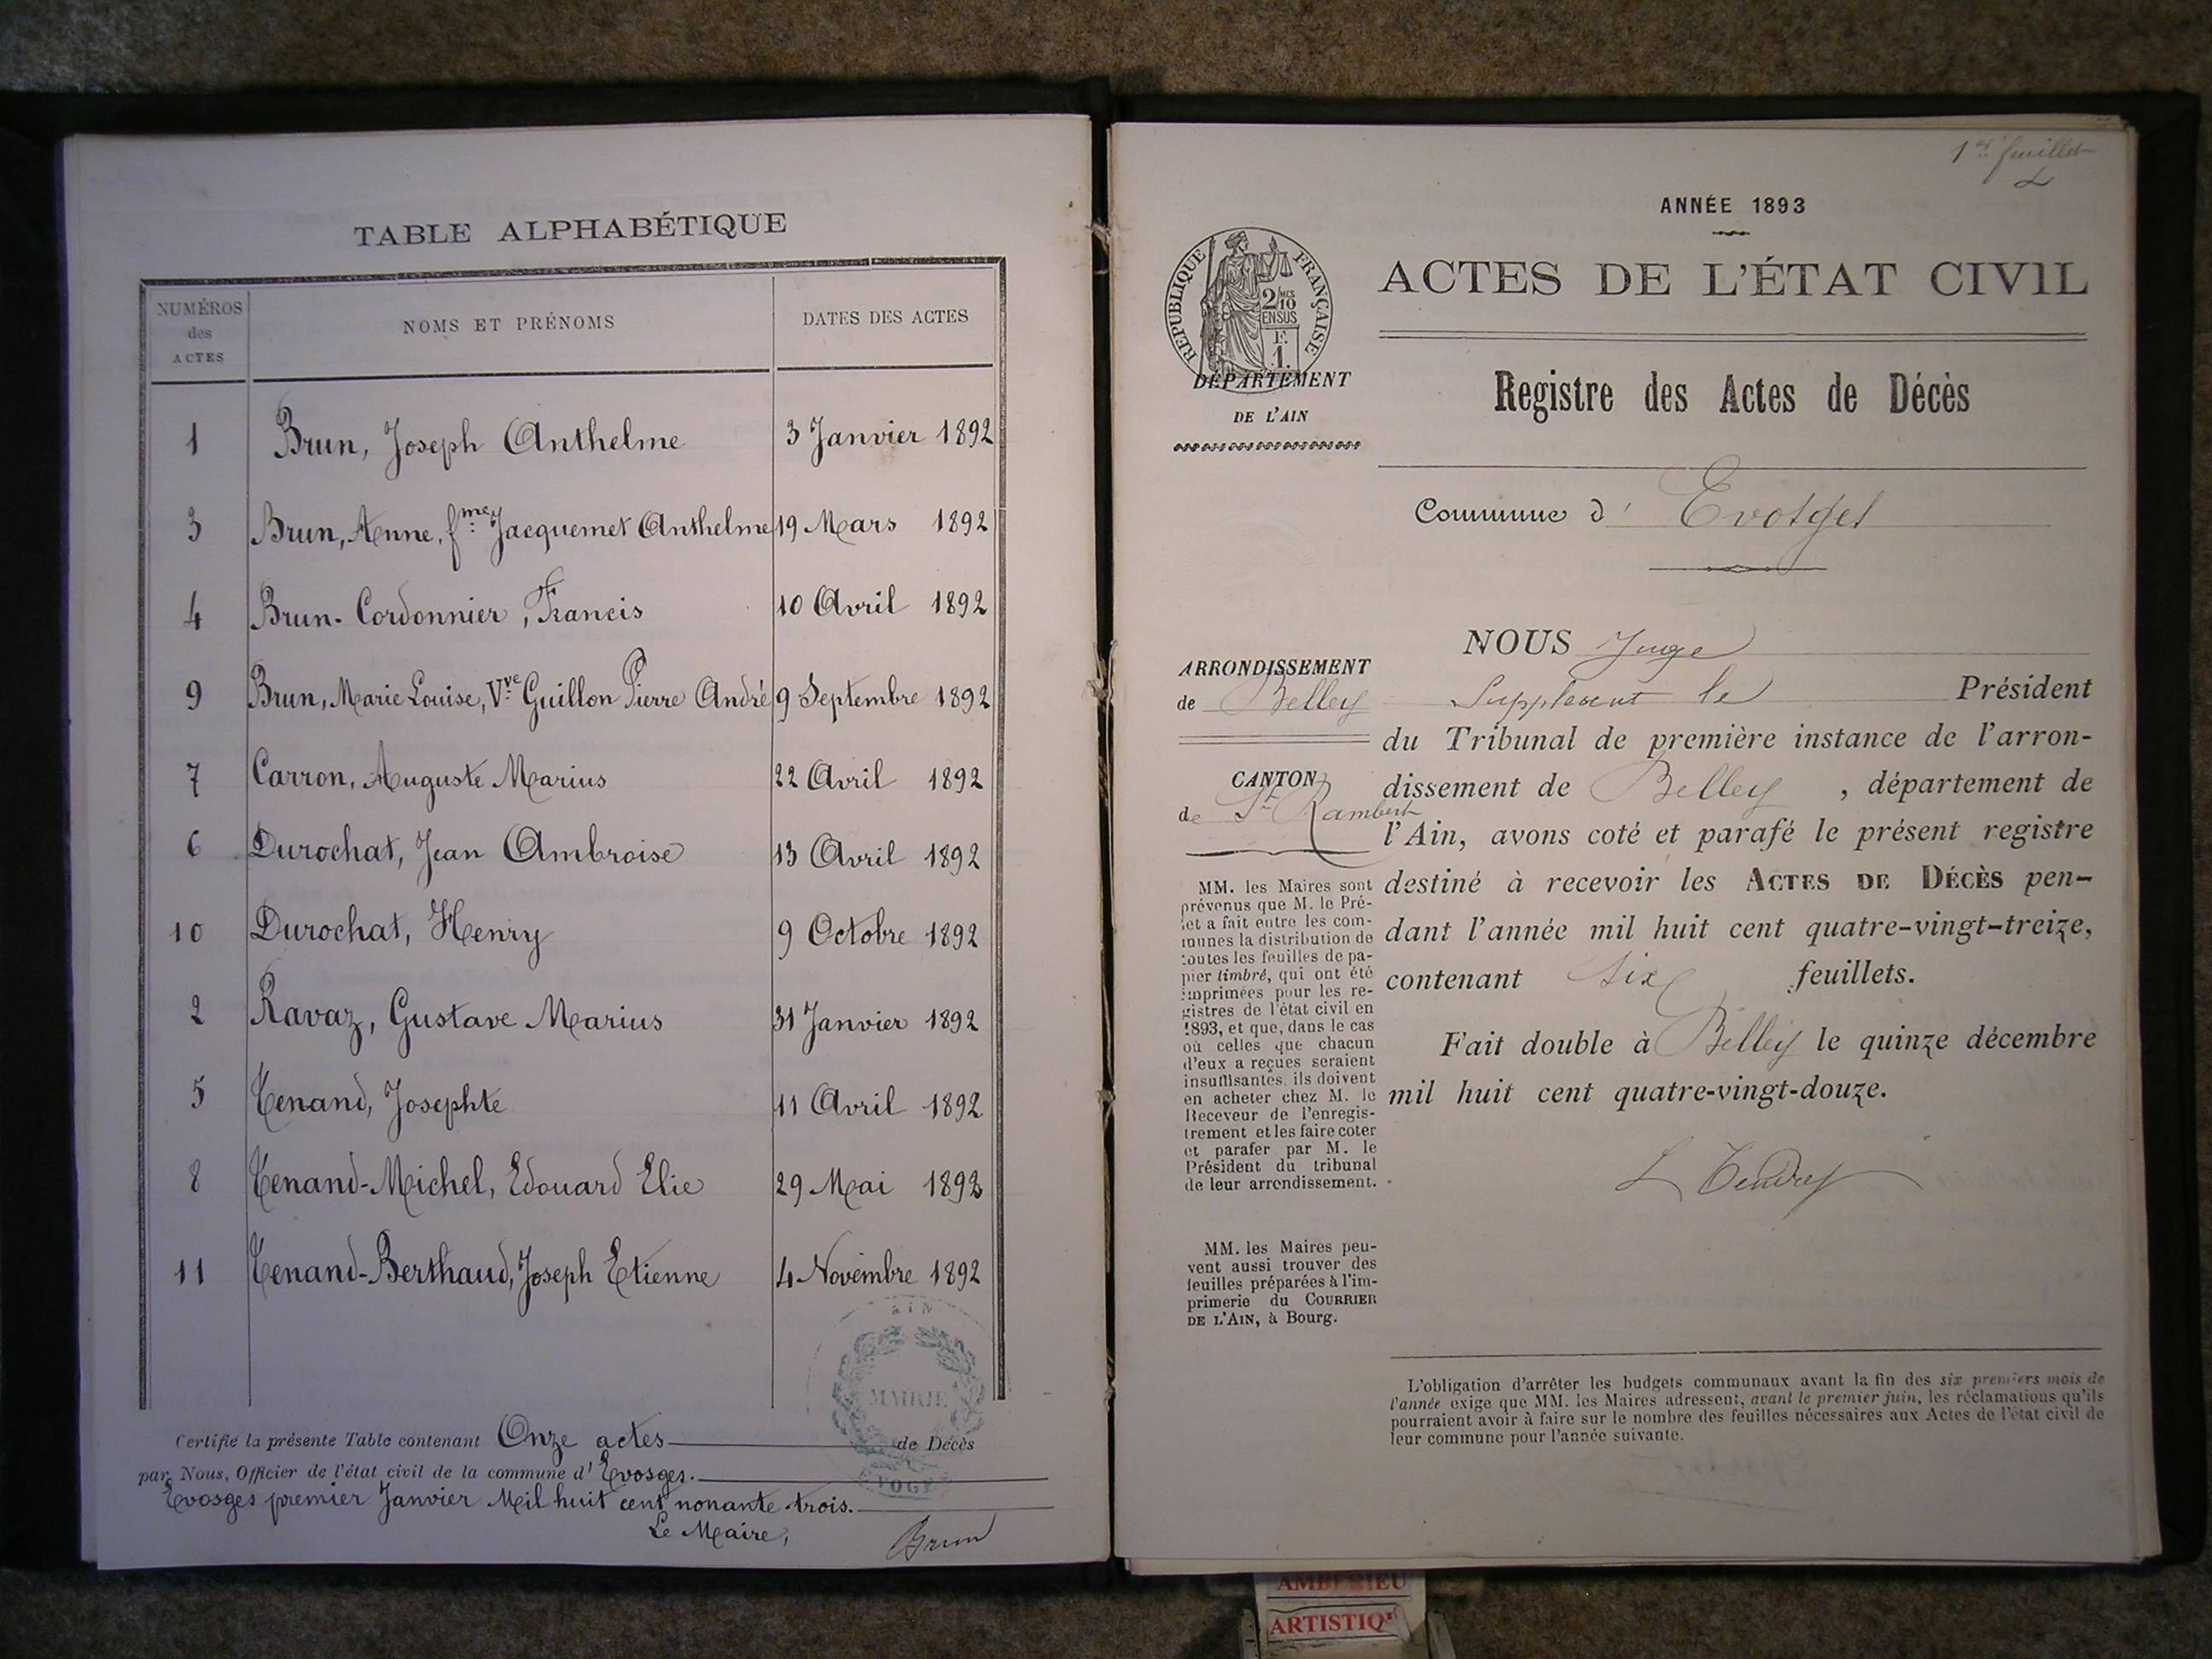 TABLE ALPHABÉTIQUE
NUMÉROS
des
ACTES
NOMS ET PRÉNOMS
DATES DES ACTES
1 Brun, Joseph Anthelme 3 Janvier 1892
3 Brun, Anne, fme Jacquemet Anthelme 19 Mars 1892
4 Brun-Cordonnier, Francis 10 Avril 1892
9 Brun, Marie Louise, Vve Guillon Pierre André 9 Septembre 1892
7 Carron, Auguste Marius 22 Avril 1892
6 Durochat, Jean Ambroise 13 Avril 1892
10 Durochat, Henry 9 Octobre 1892
2 Ravaz, Gustave Marius 31 Janvier 1892
5 Tenand, Josephte 11 Avril 1892
8 Tenand-Michel, Edouard Elie 29 Mai 1892
11 Tenand-Berthaud, Joseph Etienne 4 Novembre 1892
AIN
MAIRIE
Certifié la présente Table contenant Onze actes de Décès
par Nous, Officier de l'état civil de la commune d' Evosges.
Evosges premier Janvier Mil huit cent nonante trois.
Le Maire,
Brun
1er feuillet
ANNÉE 1893
RÉPUBLIQUE FRANÇAISE
2/10 MES
EN SUS
F.
1.
ACTES DE L'ÉTAT CIVIL
DÉPARTEMENT
DE L'AIN
Registre des Actes de Décès
Commune d' Evosges
ARRONDISSEMENT
de Belley
CANTON
de St Rambert
MM. les Maires sont
prévenus que M. le Pré-
fet a fait entre les com-
munes la distribution de
toutes les feuilles de pa-
pier timbré, qui ont été
imprimées pour les re-
gistres de l'état civil en
1893, et que, dans le cas
où celles que chacun
d'eux a reçues seraient
insuffisantes, ils doivent
en acheter chez M. le
Receveur de l'enregis-
trement et les faire coter
et parafer par M. le
Président du tribunal
de leur arrondissement.
MM. les Maires peu-
vent aussi trouver des
feuilles préparées à l'im-
primerie du COURRIER
DE L'AIN, à Bourg.
NOUS Juge
Suppléant le Président
du Tribunal de première instance de l'arron-
dissement de Belley, département de
l'Ain, avons coté et parafé le présent registre
destiné à recevoir les ACTES DE DÉCÈS pen-
dant l'année mil huit cent quatre-vingt-treize,
contenant six feuillets.
Fait double à Belley le quinze décembre
mil huit cent quatre-vingt-douze.
L'obligation d'arrêter les budgets communaux avant la fin des six premiers mois de
l'année exige que MM. les Maires adressent, avant le premier juin, les réclamations qu'ils
pourraient avoir à faire sur le nombre des feuilles nécessaires aux Actes de l'état civil de
leur commune pour l'année suivante.
ARTISTIQ